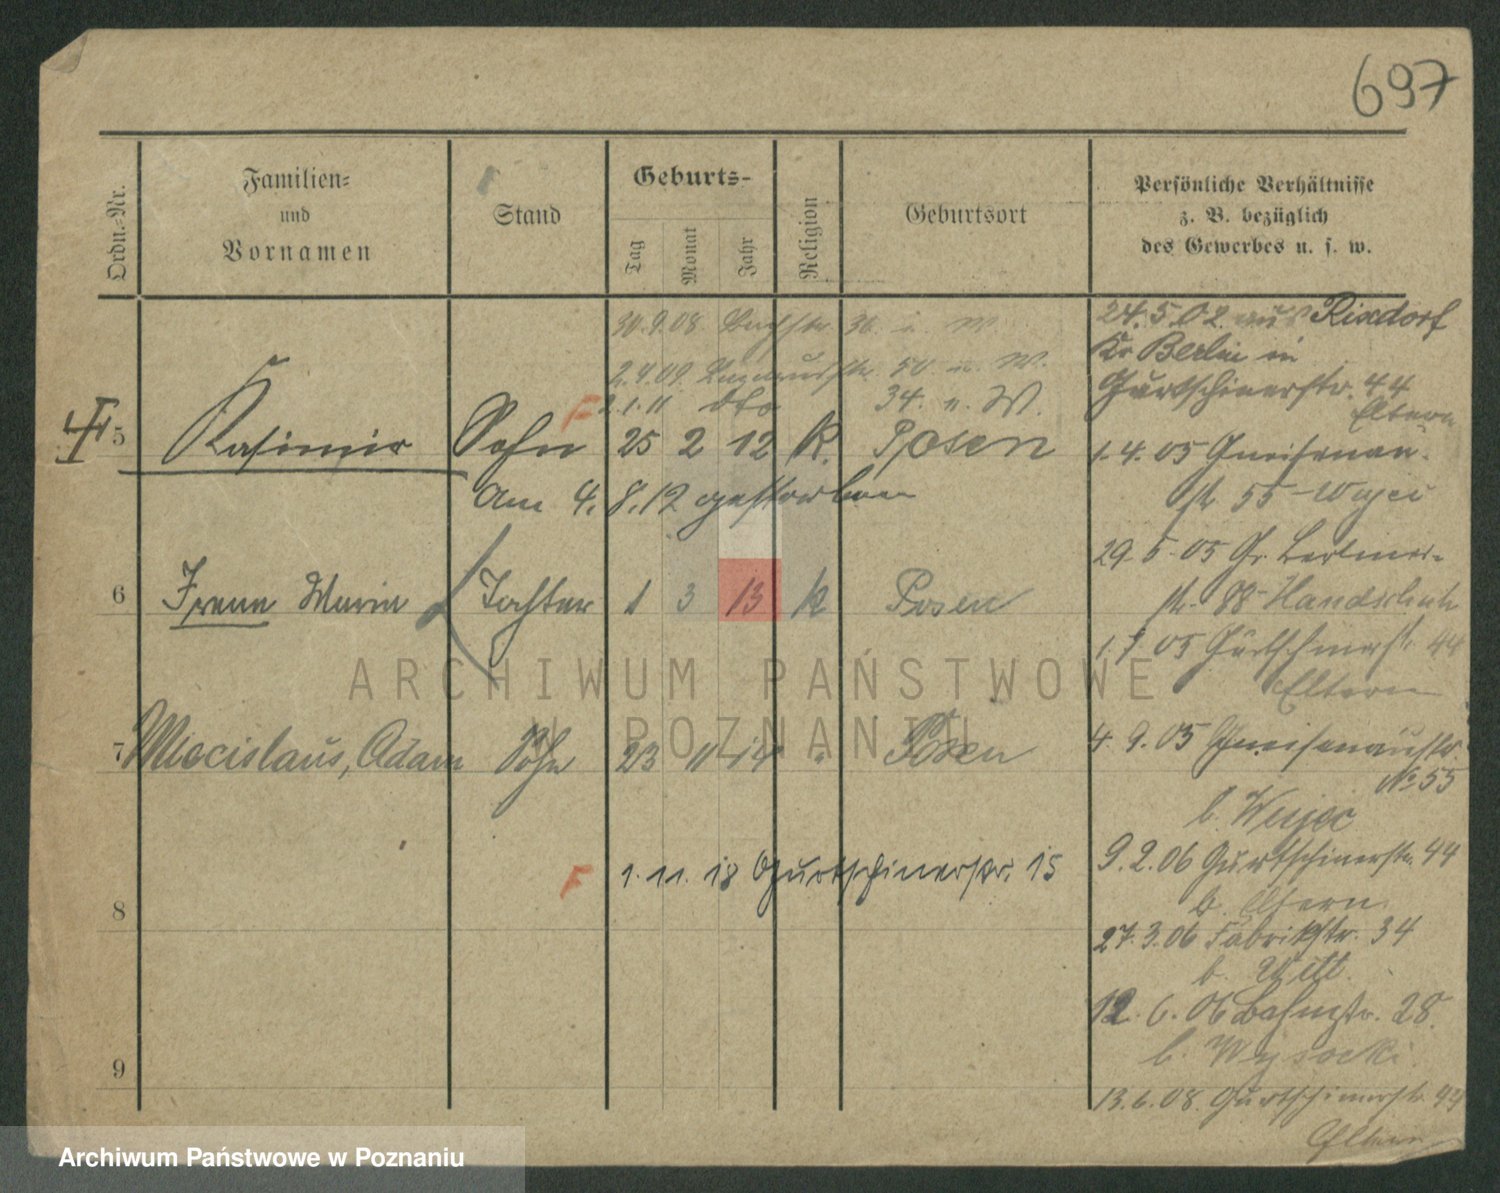 697
Ordn.-Nr.
Familien-
und
Vornamen
Stand
Geburts-
Tag
Monat
Jahr
Religion
Geburtsort
Persönliche Verhältnisse
z. B. bezüglich
des Gewerbes u. s. w.
30.9.08 36. u. W
2.4.09 50 u. W.
F 2.1.11 dto 34. u. W.
5 Kasimir Sohn 25 2 12 K. Posen
Am 4. 8. 12 gestorben
6 Irene Maria Tochter 1 3 13 K Posen
7 Miecislaus, Adam Sohn 23 11 14 " Posen
F 1. 11. 18 Gurtschinerstr. 15
8
9
24. 5. 02 aus Rixdorf
Kr Berlin in
Gurtschinerstr. 44
Eltern
1. 4. 05 Gneisenau-
str 55 - Wujec
29. 5. 05 Gr. Berliner-
str. 88 - Handschuh
1. 7. 05 Gurtschinerstr. 44
Eltern
4. 9. 05 Gneisenaustr.
No 55
b. Wujec
9. 2. 06 Gurtschinerstr. 44
b. Eltern
27. 3. 06 Fabrikstr. 34
b.
12. 6. 06 Bahnstr. 28.
b. Wysocki
13. 6. 08 Gurtschinerstr. 44
Eltern
ARCHIWUM PAŃSTWOWE
W POZNANIU
Archiwum Państwowe w Poznaniu